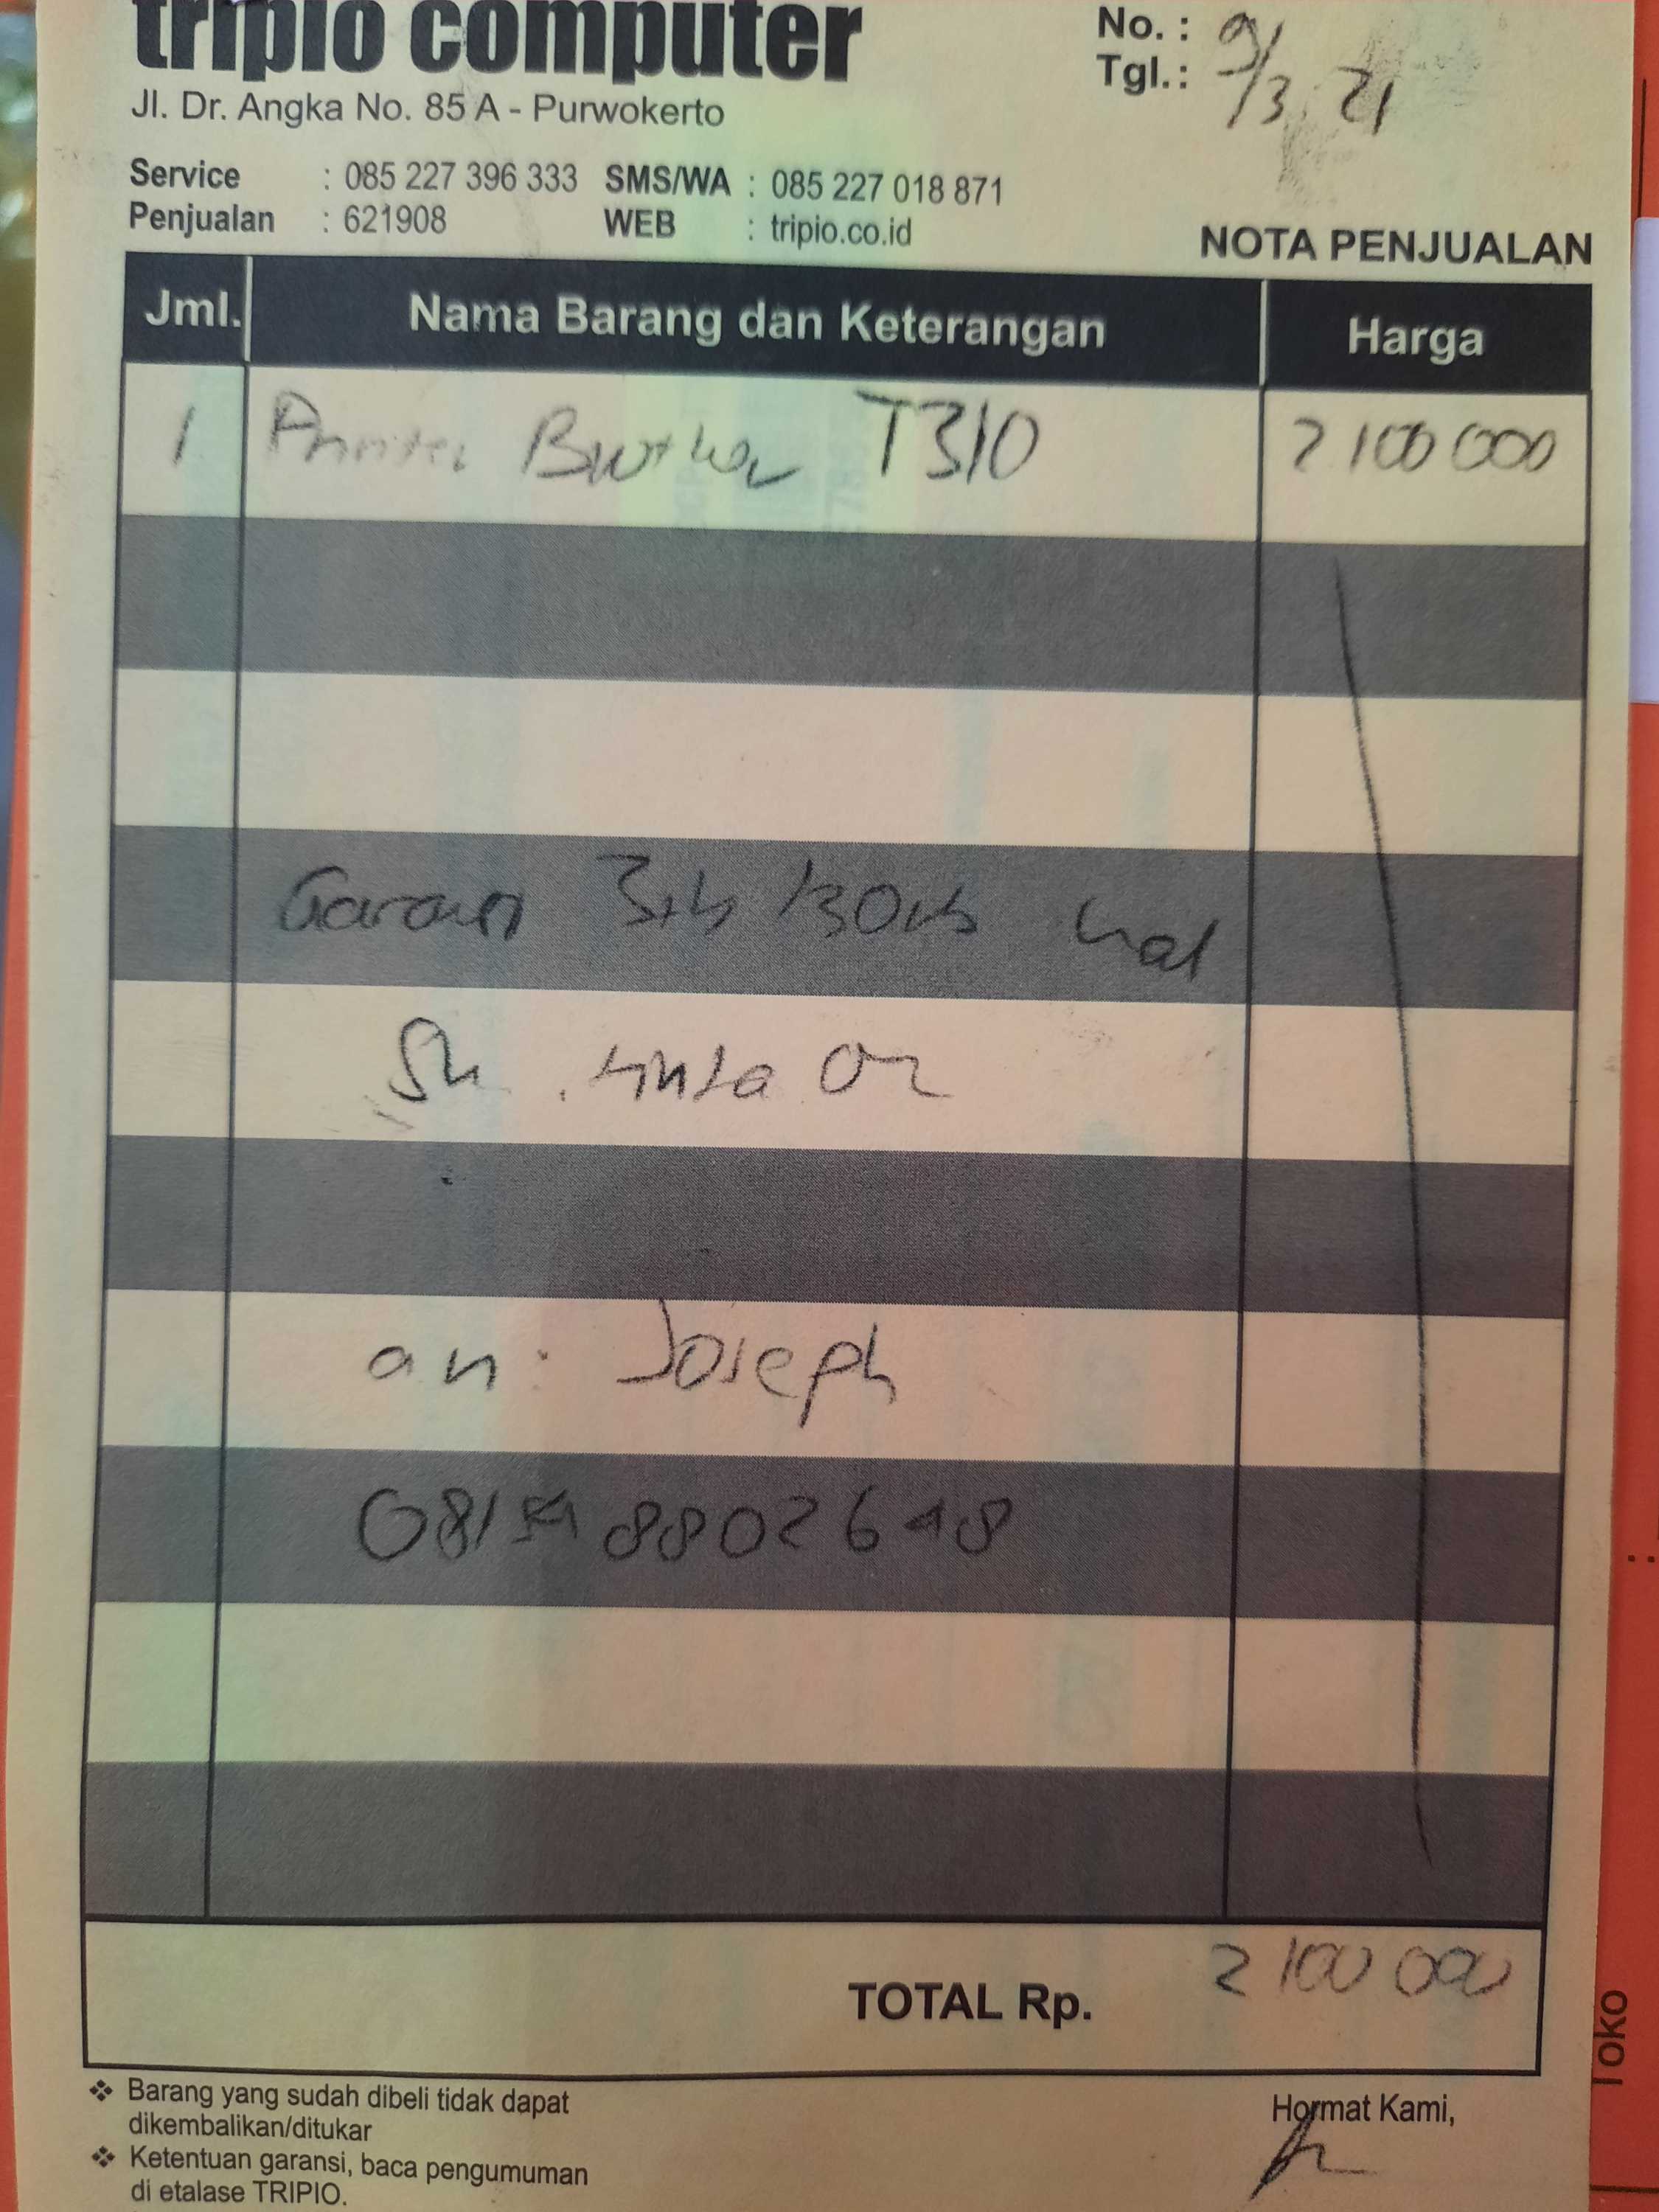 tripio computer
Jl. Dr. Angka No. 85 A - Purwokerto
No. :
Tgl. : 9/3 21
Service : 085 227 396 333 SMS/WA : 085 227 018 871
Penjualan : 621908 WEB : tripio.co.id
NOTA PENJUALAN
Jml. Nama Barang dan Keterangan Harga
1 Printer Brother T310 2 100 000
Garansi 3th /30rb hal
tinta Or
an: Joseph
8802648
TOTAL Rp. 2 100 000
❖ Barang yang sudah dibeli tidak dapat
dikembalikan/ditukar
❖ Ketentuan garansi, baca pengumuman
di etalase TRIPIO.
Hormat Kami,
Toko